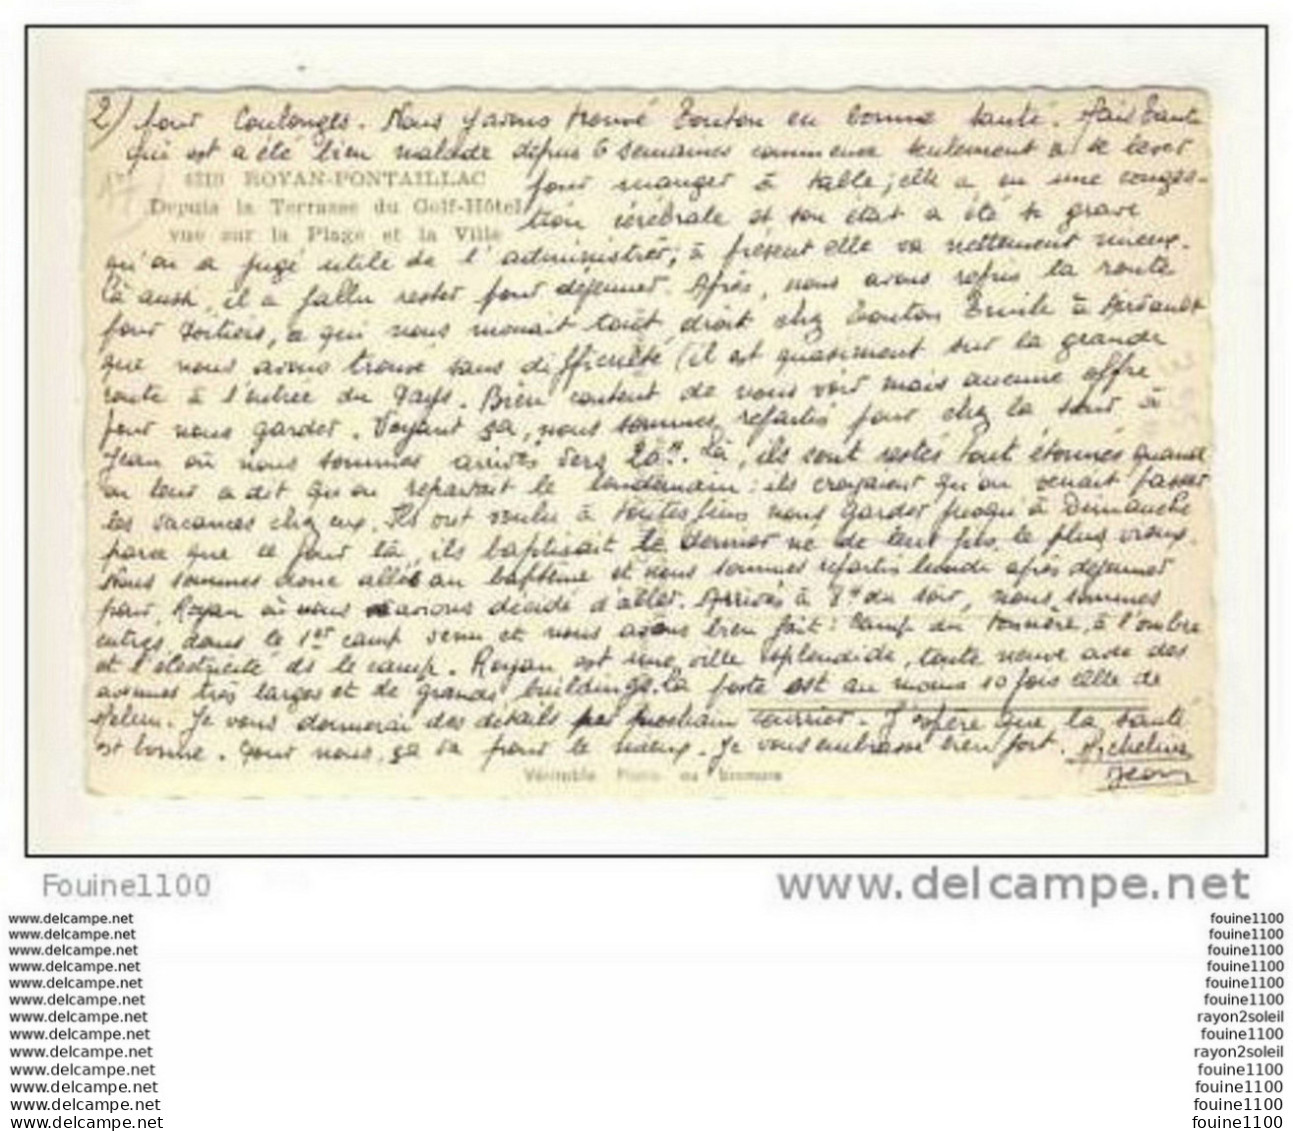 2) pour Coulonges. Nous y avons trouvé Tonton en bonne santé. Mais Tante
qui est a été bien malade depuis 6 semaines commence seulement à se lever
pour manger à table; elle a eu une conges-
tion cérébrale et son état a été si grave
6319 ROYAN-PONTAILLAC
Depuis la Terrasse du Golf-Hôtel
vue sur la Plage et la Ville
qu'on a jugé utile de l'administrer; à présent elle va nettement mieux.
Là aussi, il a fallu rester pour déjeuner. Après, nous avons repris la route
pour Poitiers, ce qui nous menait tout droit chez Tonton Emile à
que nous avons trouvé sans difficulté (il est quasiment sur la grande
route à l'entrée du Pays. Bien content de nous voir mais aucune offre
pour nous garder. Voyant ça, nous sommes repartis pour chez la sœur à
Jean où nous sommes arrivés vers 20H. Là, ils sont restés tout étonnés quand
on leur a dit qu'on repartait le lendemain: ils croyaient qu'on venait passer
les vacances chez eux. Ils ont voulu à toutes fins nous garder jusqu'à Dimanche
parce que ce jour là, ils baptisait le dernier né de leur fils le plus vieux.
Nous sommes donc allés au baptême et nous sommes repartis lundi après déjeuner
pour Royan où nous avions décidé d'aller. Arrivés à 8H du soir, nous sommes
entrés dans le 1er camp venu et nous avons bien fait: camp du Tonnerre, à l'ombre
et l'électricité ds le camp. Royan est une ville splendide, toute neuve avec des
avenues très larges et de grands buildings. La poste est au moins 10 fois celle de
Melun. Je vous donnerai des détails prochain courrier. J'espère que la santé
est bonne. Pour nous, ça va pour le mieux. Je vous embrasse bien fort. Micheline
Jean
Véritable Photo au bromure
Fouine1100
www.delcampe.net
www.delcampe.net
fouine1100
www.delcampe.net
fouine1100
www.delcampe.net
fouine1100
www.delcampe.net
fouine1100
www.delcampe.net
fouine1100
www.delcampe.net
fouine1100
www.delcampe.net
rayon2soleil
www.delcampe.net
fouine1100
www.delcampe.net
rayon2soleil
www.delcampe.net
fouine1100
www.delcampe.net
fouine1100
www.delcampe.net
fouine1100
www.delcampe.net
fouine1100